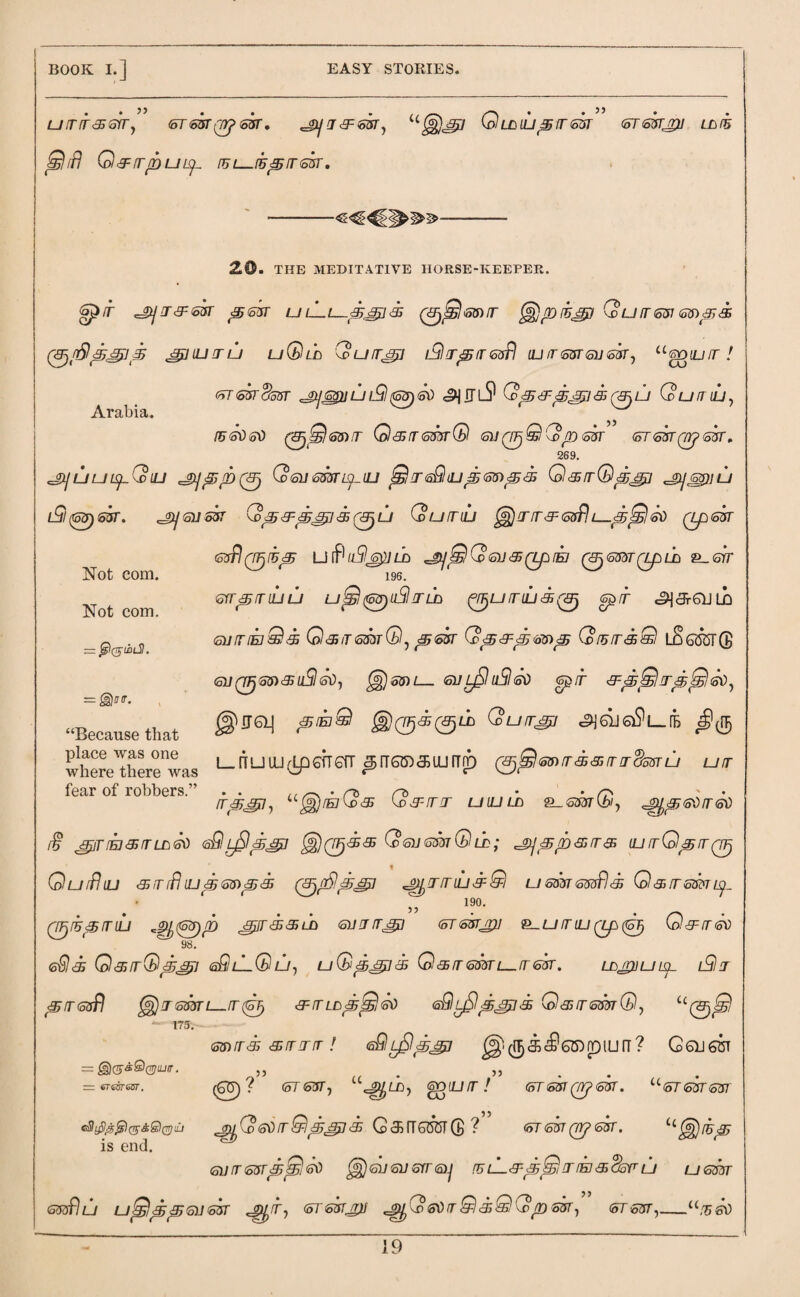 BOOK I.] EASY STORIES.
பார்கள்," என்றான். அரசன், "இது மெய்தான்" என்று மந்
திரி சொற்படி நடந்தான்.
20. THE MEDITATIVE HORSE-KEEPER.
ஓர் அரசன் தன் பட்டத்துக் குதிரை இறந்து போனதைக்
குறித்துத் துயரப் படும் போது பிரதானி யானவன், "ஐயா!
Arabia.
என்னை அனுப்பினால் அரபி தேசத்துக்குப் போய்,
நல்ல குதிரை கொண்டு வருகிறேன்" என்றான்.
269.
அப்படியே அதற்கு வேண்டிய திரவியத்தைக் கொடுத்து அனுப்
பினான். அவன் தேசத்துக்குப் போய் இராசனிடத்தில் முன்
Not com.
னிருந்த பரியினும் அதிவேகமுங் குணமும் உள்
196.
Not com.
ளதாய்ப் பதினாயிரம் ரூபாய்க்கு ஓர் அசுவம்
= திரும்பி.
வாங்கிக் கொண்டு, தன் தேசத்தை நோக்கி மீண்டு
வருகையில், இடை வழியில் ஓர் சத்திரத்தில்,
= இரா.
இரவு தங்கி இருக்கும் போது அவ்விடந் திரு
"Because that place was one where there was fear of robbers."
டர் பயமுள்ள தாகையாற் குதிரைக்காரனைப் பா
ர்த்து, "இங்கே சோர பயம் உண்டு, ஆதலால்
நீ தூங்காமல் விழித்து இருக்க வேண்டும்; அதற்காக யாதொரு
பெரிய காரியத்தைக் குறித்து ஆராய்ச்சி பண்ணிக் கொண்டி
190.
ருந்தாய் ஆனாற் தூக்கம் வராது" என்று உபாயமுஞ் சொல்
98.
லிக் கொடுத்து விட்டுப், படுத்துக் கொண்டான். மறுபடி பிர
தானி இரண்டாஞ் சாமத்தில் விழித்துக் கொண்டு, "குதி
175.
ரைக் காரா! விழித்து இருக்கிறையா? வென்
= இருக்கிறாயா.
= என்ன.
னா? என, "ஆம், ஐயா!" என்றான். "என்ன
விழித்திருக்கிறாய் is end.
ஆலோசித்துக் கொண்டு?" என்றான். "இந்த
வானத்தில் இவ்வளவு நட்சத்திரங்களைப் பண்
ணிப் பதித்தவன் ஆர், என்று ஆலோசிக்கிறேன்," என,—"நல
19